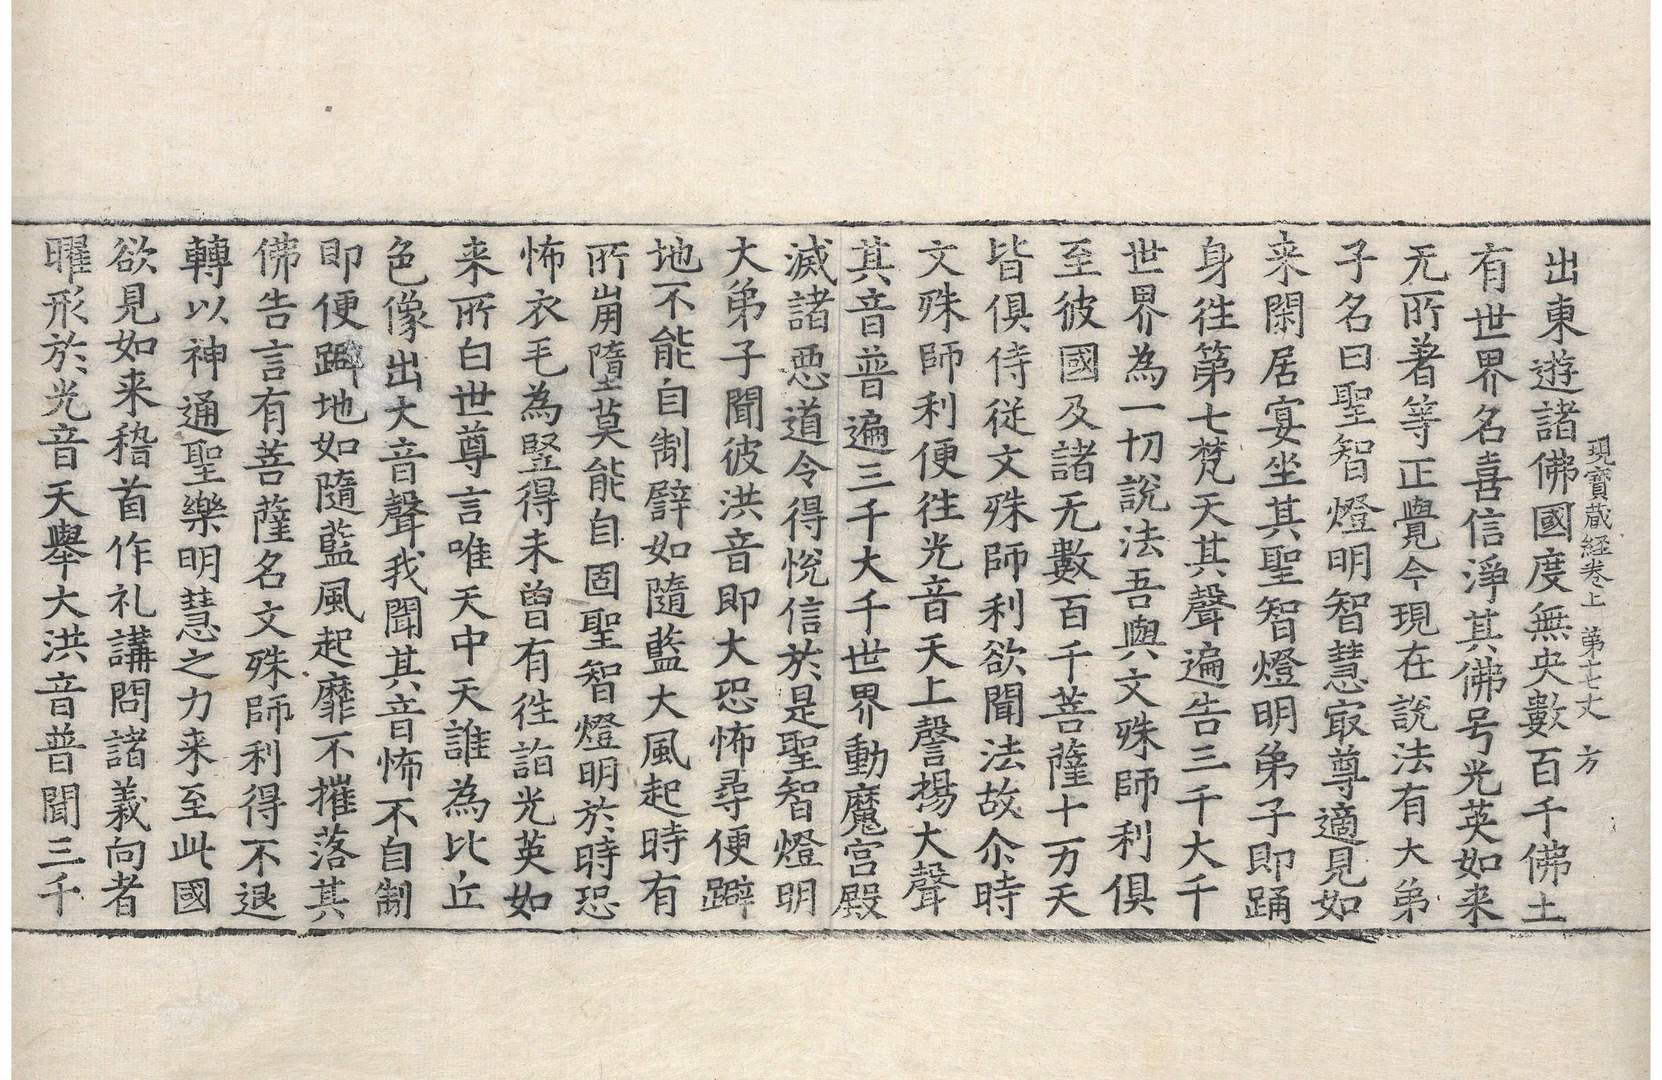 現寶蔵経卷上 第七丈 方
出東遊諸佛國度無央數百千佛土
有世界名喜信淨其佛号光英如来
无所著等正覺今現在說法有大弟
子名曰聖智燈明智慧㝡尊適見如
来閑居宴坐其聖智燈明弟子即踊
身徃第七梵天其聲遍告三千大千
世界為一切說法吾與文殊師利俱
至彼國及諸无數百千菩薩十万天
皆俱侍従文殊師利欲聞法故尒時
文殊師利便徃光音天上謦揚大聲
其音普遍三千大千世界動魔宫殿
滅諸惡道令得悅信於是聖智燈明
大弟子聞彼洪音即大恐怖尋便躃
地不能自制譬如隨藍大風起時有
所崩墮莫能自固聖智燈明於時恐
怖衣毛為竪得未曾有徃詣光英如
来所白世尊言唯天中天誰為比丘
色像出大音聲我聞其音怖不自制
即便躃地如隨藍風起靡不摧落其
佛告言有菩薩名文殊師利得不退
轉以神通聖樂明慧之力来至此國
欲見如来稽首作礼講問諸義向者
曜形於光音天舉大洪音普聞三千